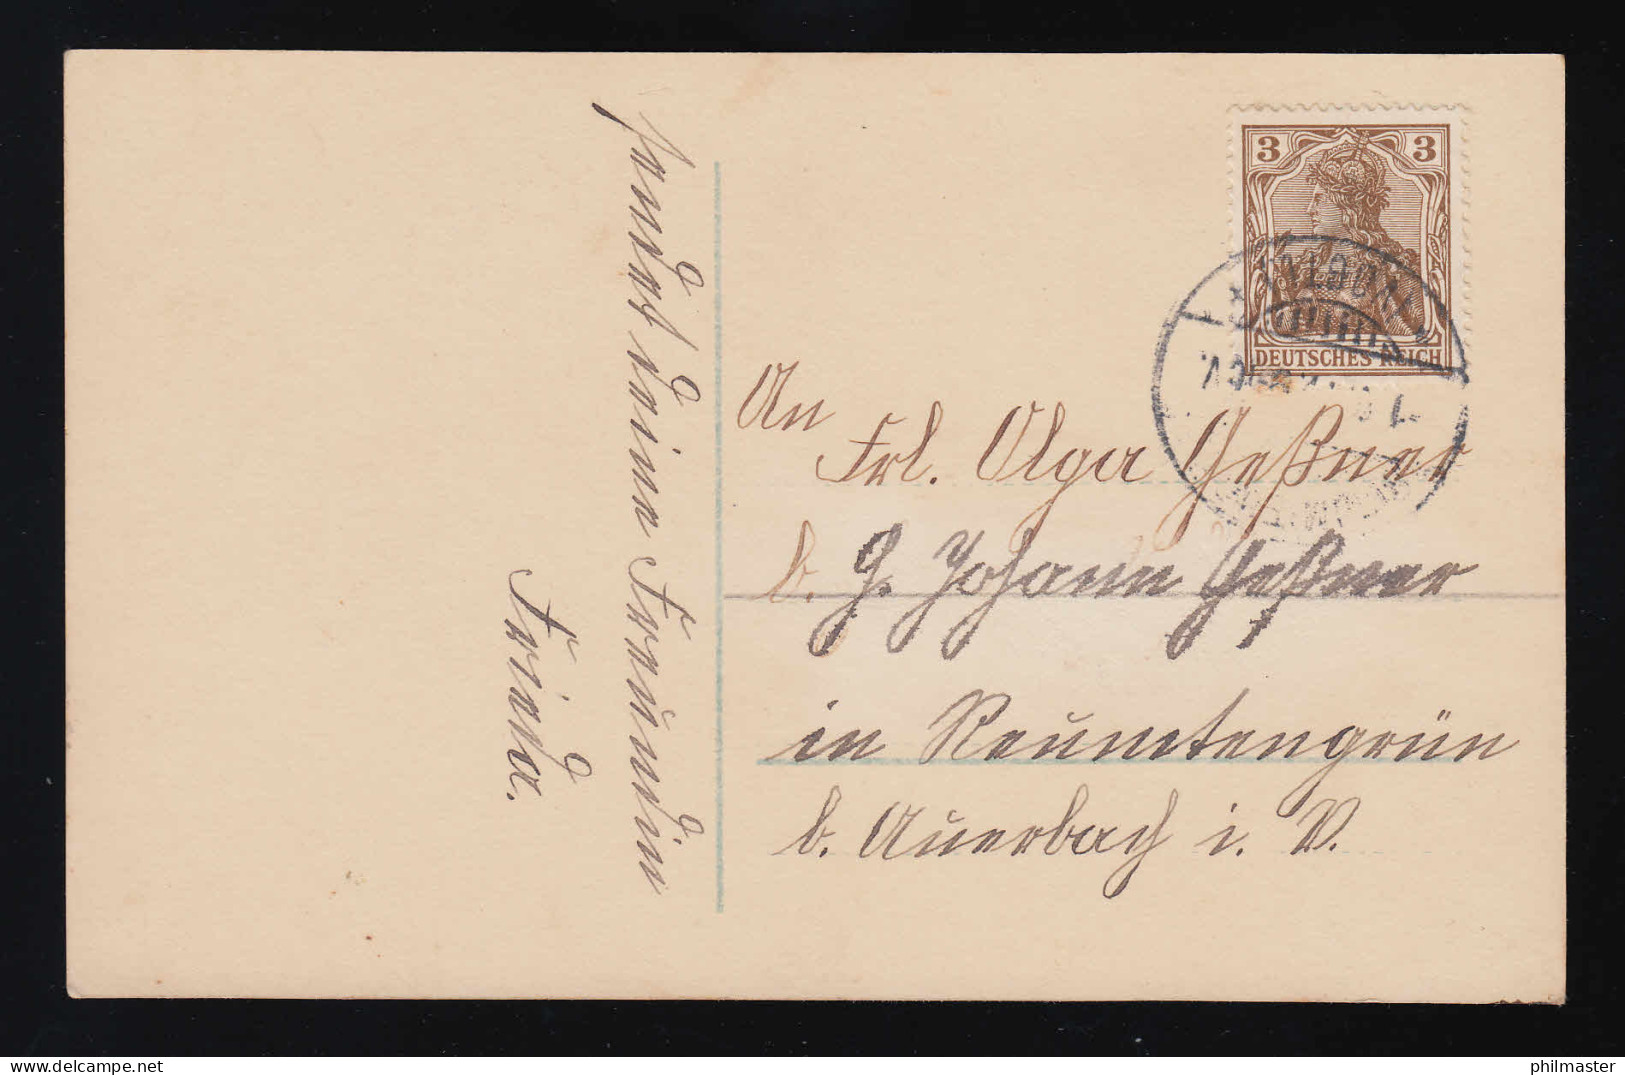 sendet deine Freundin
Frieda.
3 3
DEUTSCHES REICH
An
Frl. Olga Geßner
b. H. Johann Geßner
in Reumtengrün
b. Auerbach i. V.
philmaster